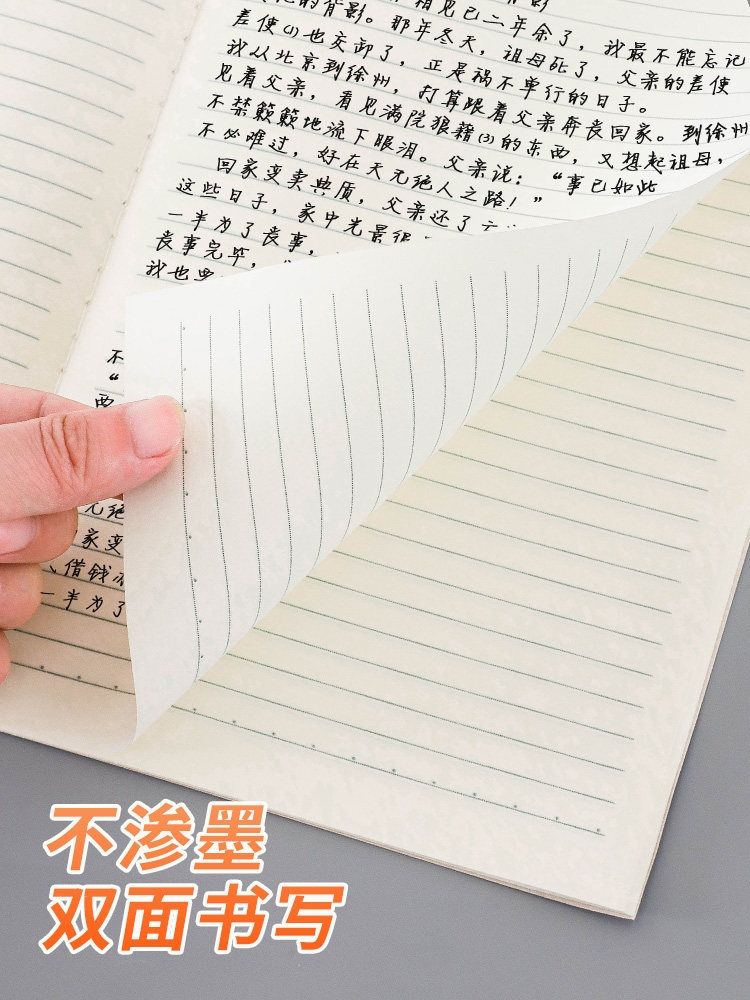 的背影。那年冬天，祖母死了，父亲的差使
相见已二年余了，我最不能忘记
差使(1)也交卸了，正是祸不单行的日子。
我从北京到徐州，打算跟着父亲奔丧回家。到徐州
见着父亲，看见满院狼藉(3)的东西，又想起祖母，
不禁簌簌地流下眼泪。父亲说：“事已如此
不必难过，好在天无绝人之路！”
回家变卖典质，父亲还了
这些日子，家中光景很
一半为了丧事，
丧事完毕，
我也
不
“
西
无绝
家变
、借钱
一半为了
不渗墨
双面书写